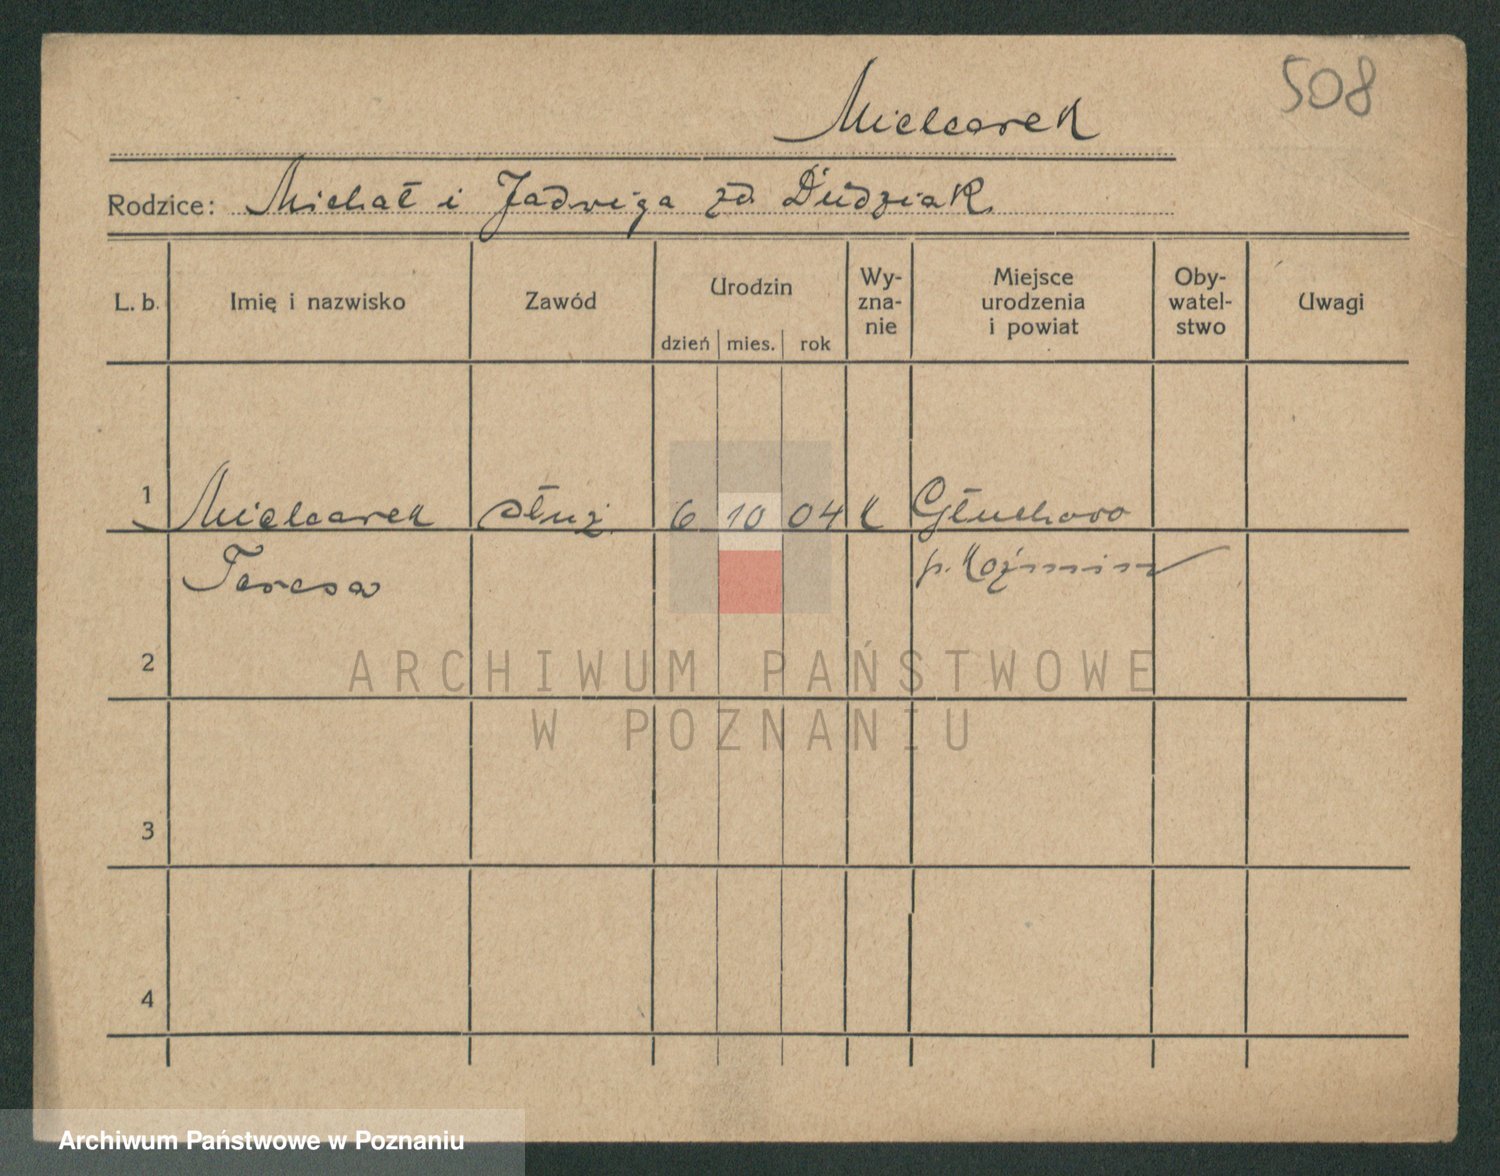 508
Mielcarek
Rodzice: Michał i Jadwiga zd. Dudziak
L. b.
Imię i nazwisko
Zawód
Urodzin
dzień mies. rok
Wy-
zna-
nie
Miejsce
urodzenia
i powiat
Oby-
watel-
stwo
Uwagi
1 Mielcarek służ. 6 10 04 K Głuchowo
Teresa p. Koźmin
2
ARCHIWUM PAŃSTWOWE
W POZNANIU
3
4
Archiwum Państwowe w Poznaniu